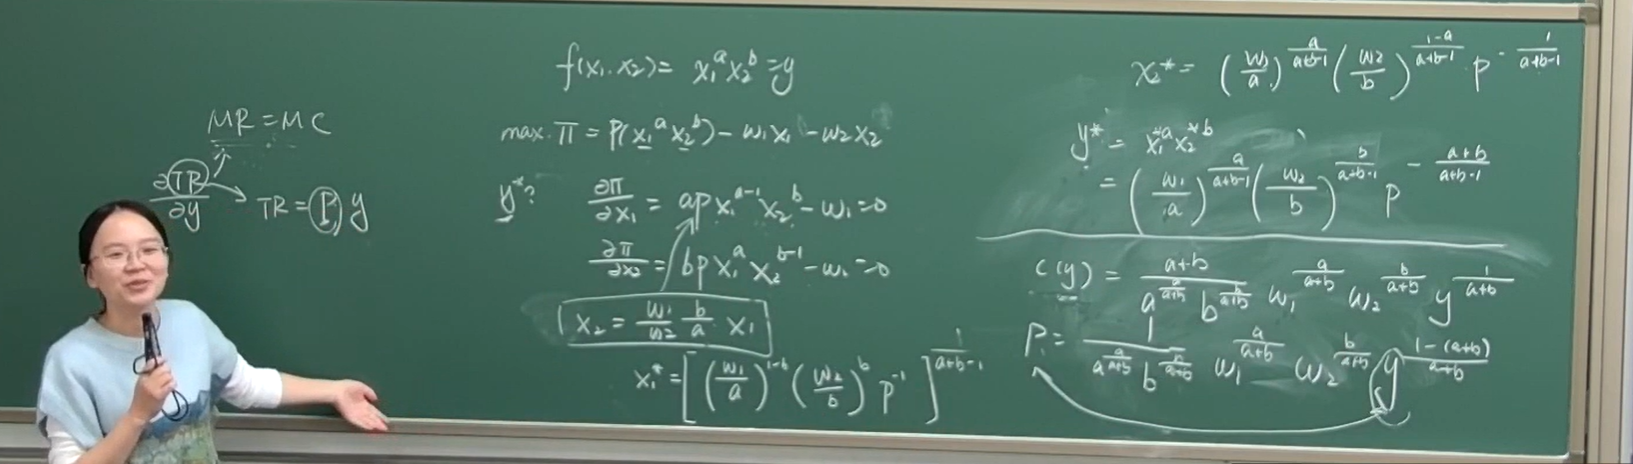 MR = MC
∂TR/∂y → TR = P y
f(x₁.x₂) = x₁^a x₂^b = y
max. π = P(x₁^a x₂^b) - w₁x₁ - w₂x₂
y*? ∂π/∂x₁ = ap x₁^(a-1) x₂^b - w₁ = 0
∂π/∂x₂ = bp x₁^a x₂^(b-1) - w₁ = 0
x₂ = w₁/w₂ b/a x₁
x₁* = [(w₁/a)^(1-b) (w₂/b)^b p^(-1)]^(1/(a+b-1))
x₂* = (w₁/a)^(a/(a+b-1)) (w₂/b)^((1-a)/(a+b-1)) p^(-1/(a+b-1))
y* = x₁*^a x₂*^b
= (w₁/a)^(a/(a+b-1)) (w₂/b)^(b/(a+b-1)) p^(-(a+b)/(a+b-1))
C(y) = (a+b)/(a^(a/(a+b)) b^(b/(a+b))) w₁^(a/(a+b)) w₂^(b/(a+b)) y^(1/(a+b))
P = 1/(a^(a/(a+b)) b^(b/(a+b))) w₁^(a/(a+b)) w₂^(b/(a+b)) y^((1-(a+b))/(a+b))